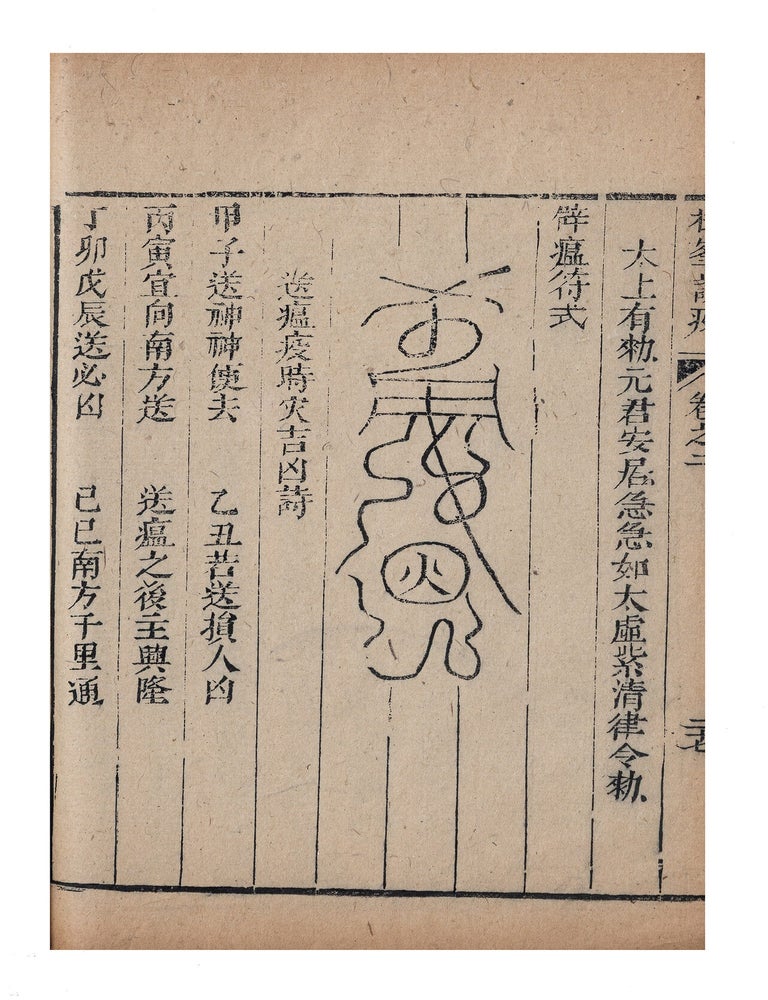 卷之二
太上有勑元君安居急急如太虛紫清律令勑
辟瘟符式
火
送瘟疫時灾吉凶詩
甲子送神神便去 乙丑若送損人凶
丙寅宜向南方送 送瘟之後主興隆
丁卯戊辰送必凶 己巳南方千里通